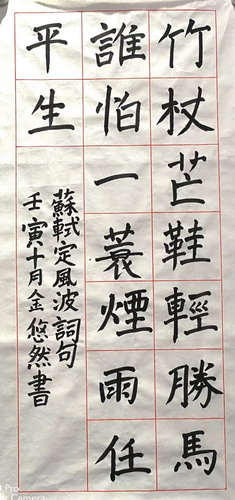 竹杖芒鞋輕勝馬
誰怕一蓑煙雨任
平生
蘇軾定風波詞句
壬寅十月金悠然書
Pro
Camera